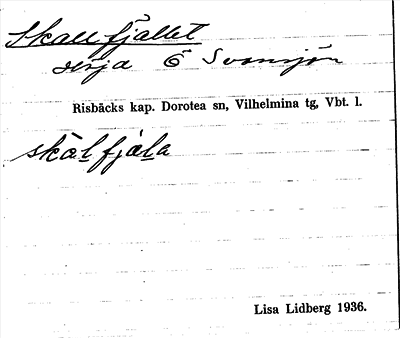 Skallfjället
sörja Ö Svansjön
Risbäcks kap. Dorotea sn, Vilhelmina tg, Vbt. l.
skälfjäla
Lisa Lidberg 1936.